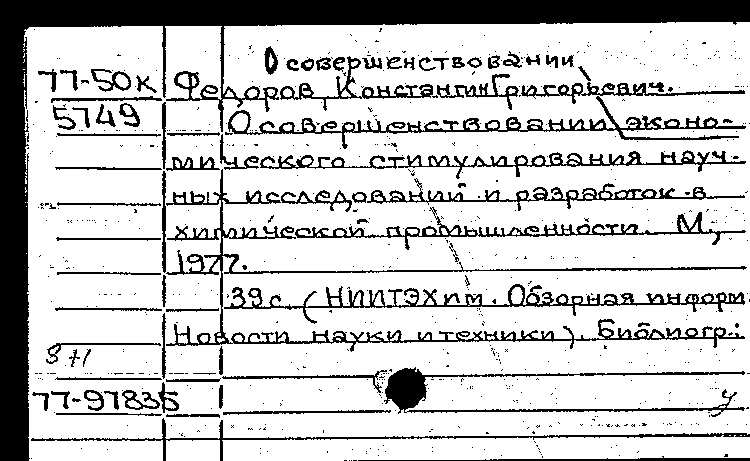 О совершенствовании
77-50к Федоров, Константин Григорьевич.
5749 О совершенствовании эконо-
мического стимулирования науч-
ных исследований и разработок в
химической промышленности. М.,
1977.
39 с. (НИИТЭХим. Обзорная информ
Новости науки и техники). Библиогр.:
8 +1
77-97835 у